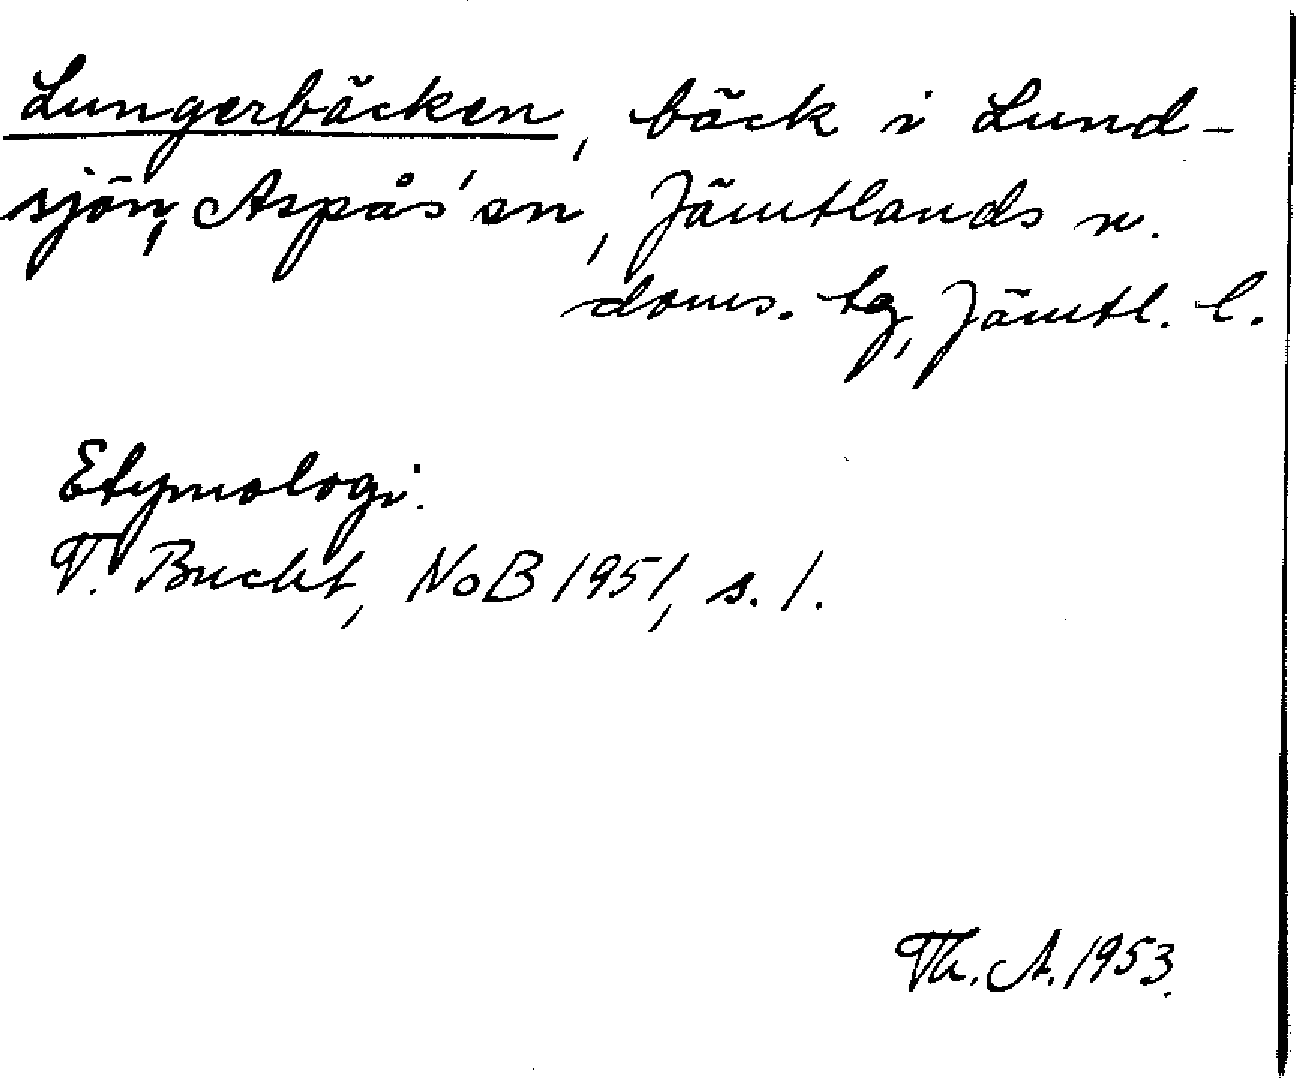 Lungerbäcken, bäck i Lund-
sjön, Aspås' sn, Jämtlands v.
doms. tg, Jämtl. l.
Etymologi.
T. Bucht, NoB 1951, s. 1.
Th. A. 1953.